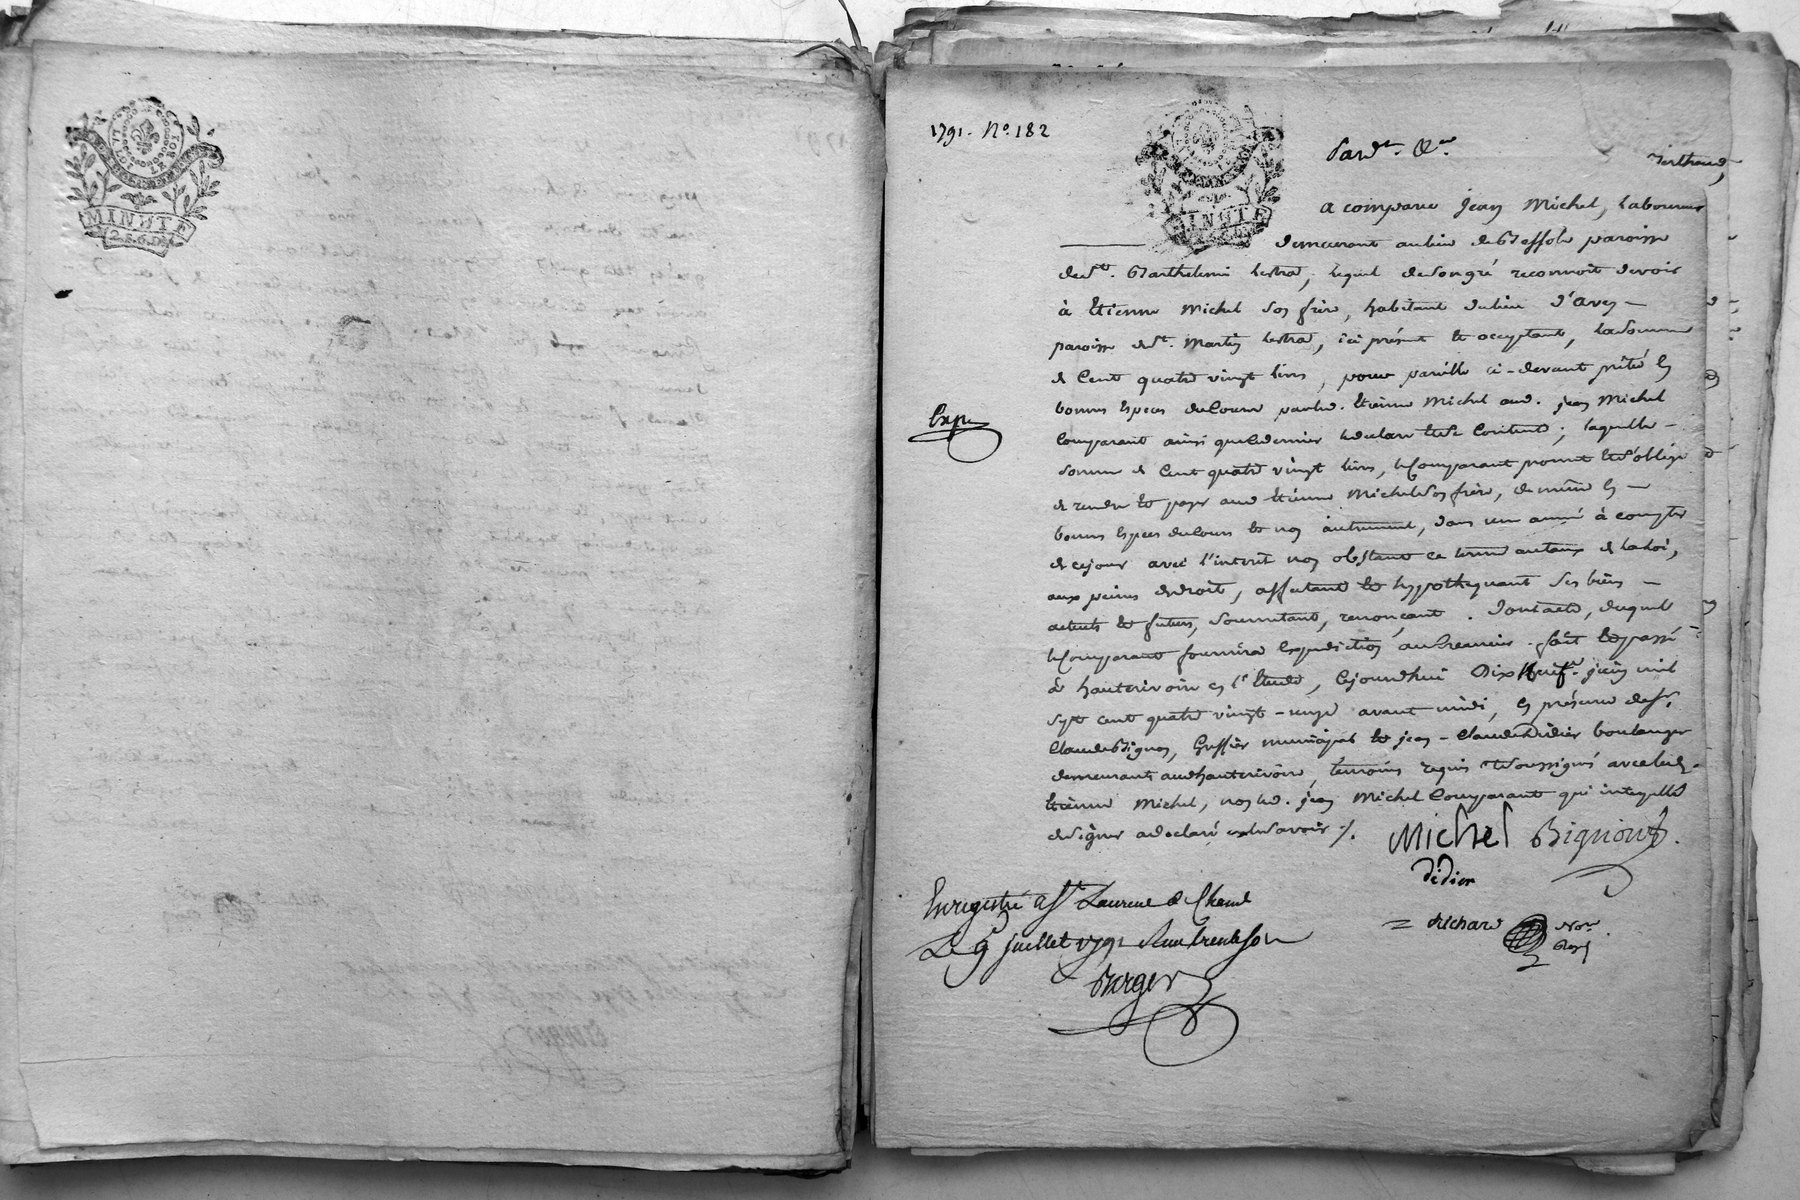 LA LOI ET LE ROI
MINUTE
1791. No. 182
LA LOI
MINUTE
Pardt. &c.
a comparu jean Michel, laboureur
demeurant au lieu de paroisse
de St. Barthelemi lestrat, lequel de son gré reconnoit devoir
à Etienne Michel son frère, habitant du lieu d'
paroisse de St. Martin lestrat, ici présent et acceptant, la somme
de Cent quatre vingt livres, pour pareille ci-devant prêté en
bonnes Espèces du Cours par led. Etienne Michel aud. jean Michel
Comparant ainsi que le dernier le declare et se Contente; laquelle
somme de Cent quatre vingt livres, le Comparant promet et s'oblige
de rendre et payer aud Etienne Michel son frère, de même en
bonnes Espèces du Cours et non autrement, dans une année à compter
de ce jour avec l'interêt non obstant ce terme au taux de la loi,
aux peines de droit, affectant et hypothequant ses biens
actuels et futurs, soumettant, renonçant. Dont acte, duquel
le Comparant fournira Expedition au Creancier. fait et passé
à hauterivoire en l'Etude, Cejourdhui Dix Neuf. juin mil
sept cent quatre vingt-onze avant midi, en présence de sr.
Claude Bignon, Greffier municipal et jean-Claude Didier boulanger
demeurants aud hauterivoire, témoins requis et soussignés avec led.
Etienne Michel, non led. jean Michel Comparant qui interpellé
de signer a déclaré ne le savoir ./.
Expe
Michel Bignon
Didier
Richard Nore
Royl
Enregistré a St Laurent de Cham
Le 9 juillet 1791 Reçu trente sols
Barger